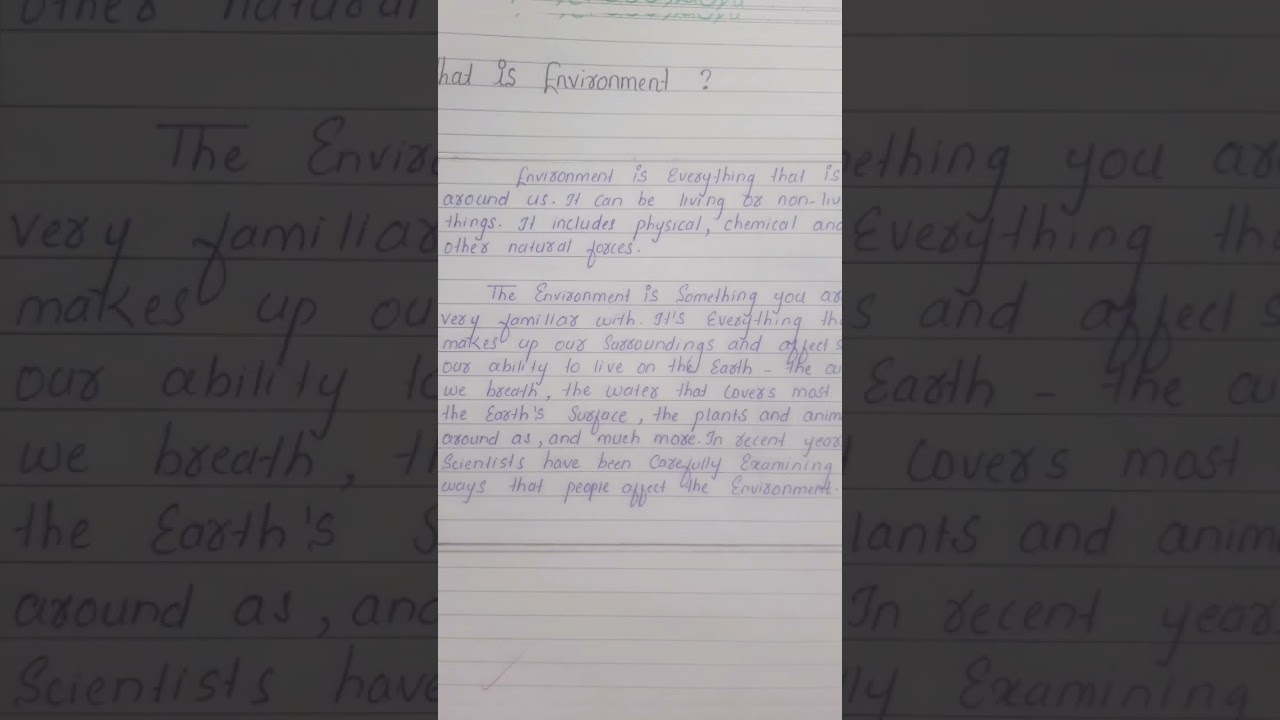 hat is Environment ?
Environment is Everything that is
around us. It can be living or non-liv
things. It includes physical, chemical and
other natural forces.
The Environment is Something you ar
very familiar with. It's Everything th
makes up our Surroundings and affects
our ability to live on the Earth - the a
we breath, the water that covers most
the Earth's Surface, the plants and anim
around as, and much more. In recent year
Scientists have been Carefully Examining
ways that people affect the Environment.